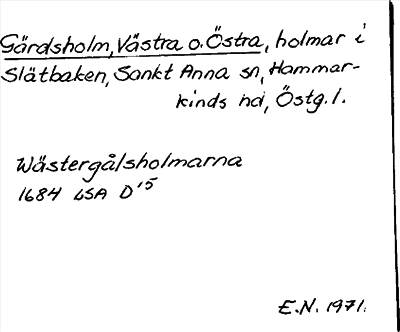 Gärdsholm, Västra o. Östra, holmar i
Slätbaken, Sankt Anna sn, Hammar-
kinds hd, Östg. l.
Wästergålsholmarna
1684 LSA D'5
E.N. 1971.